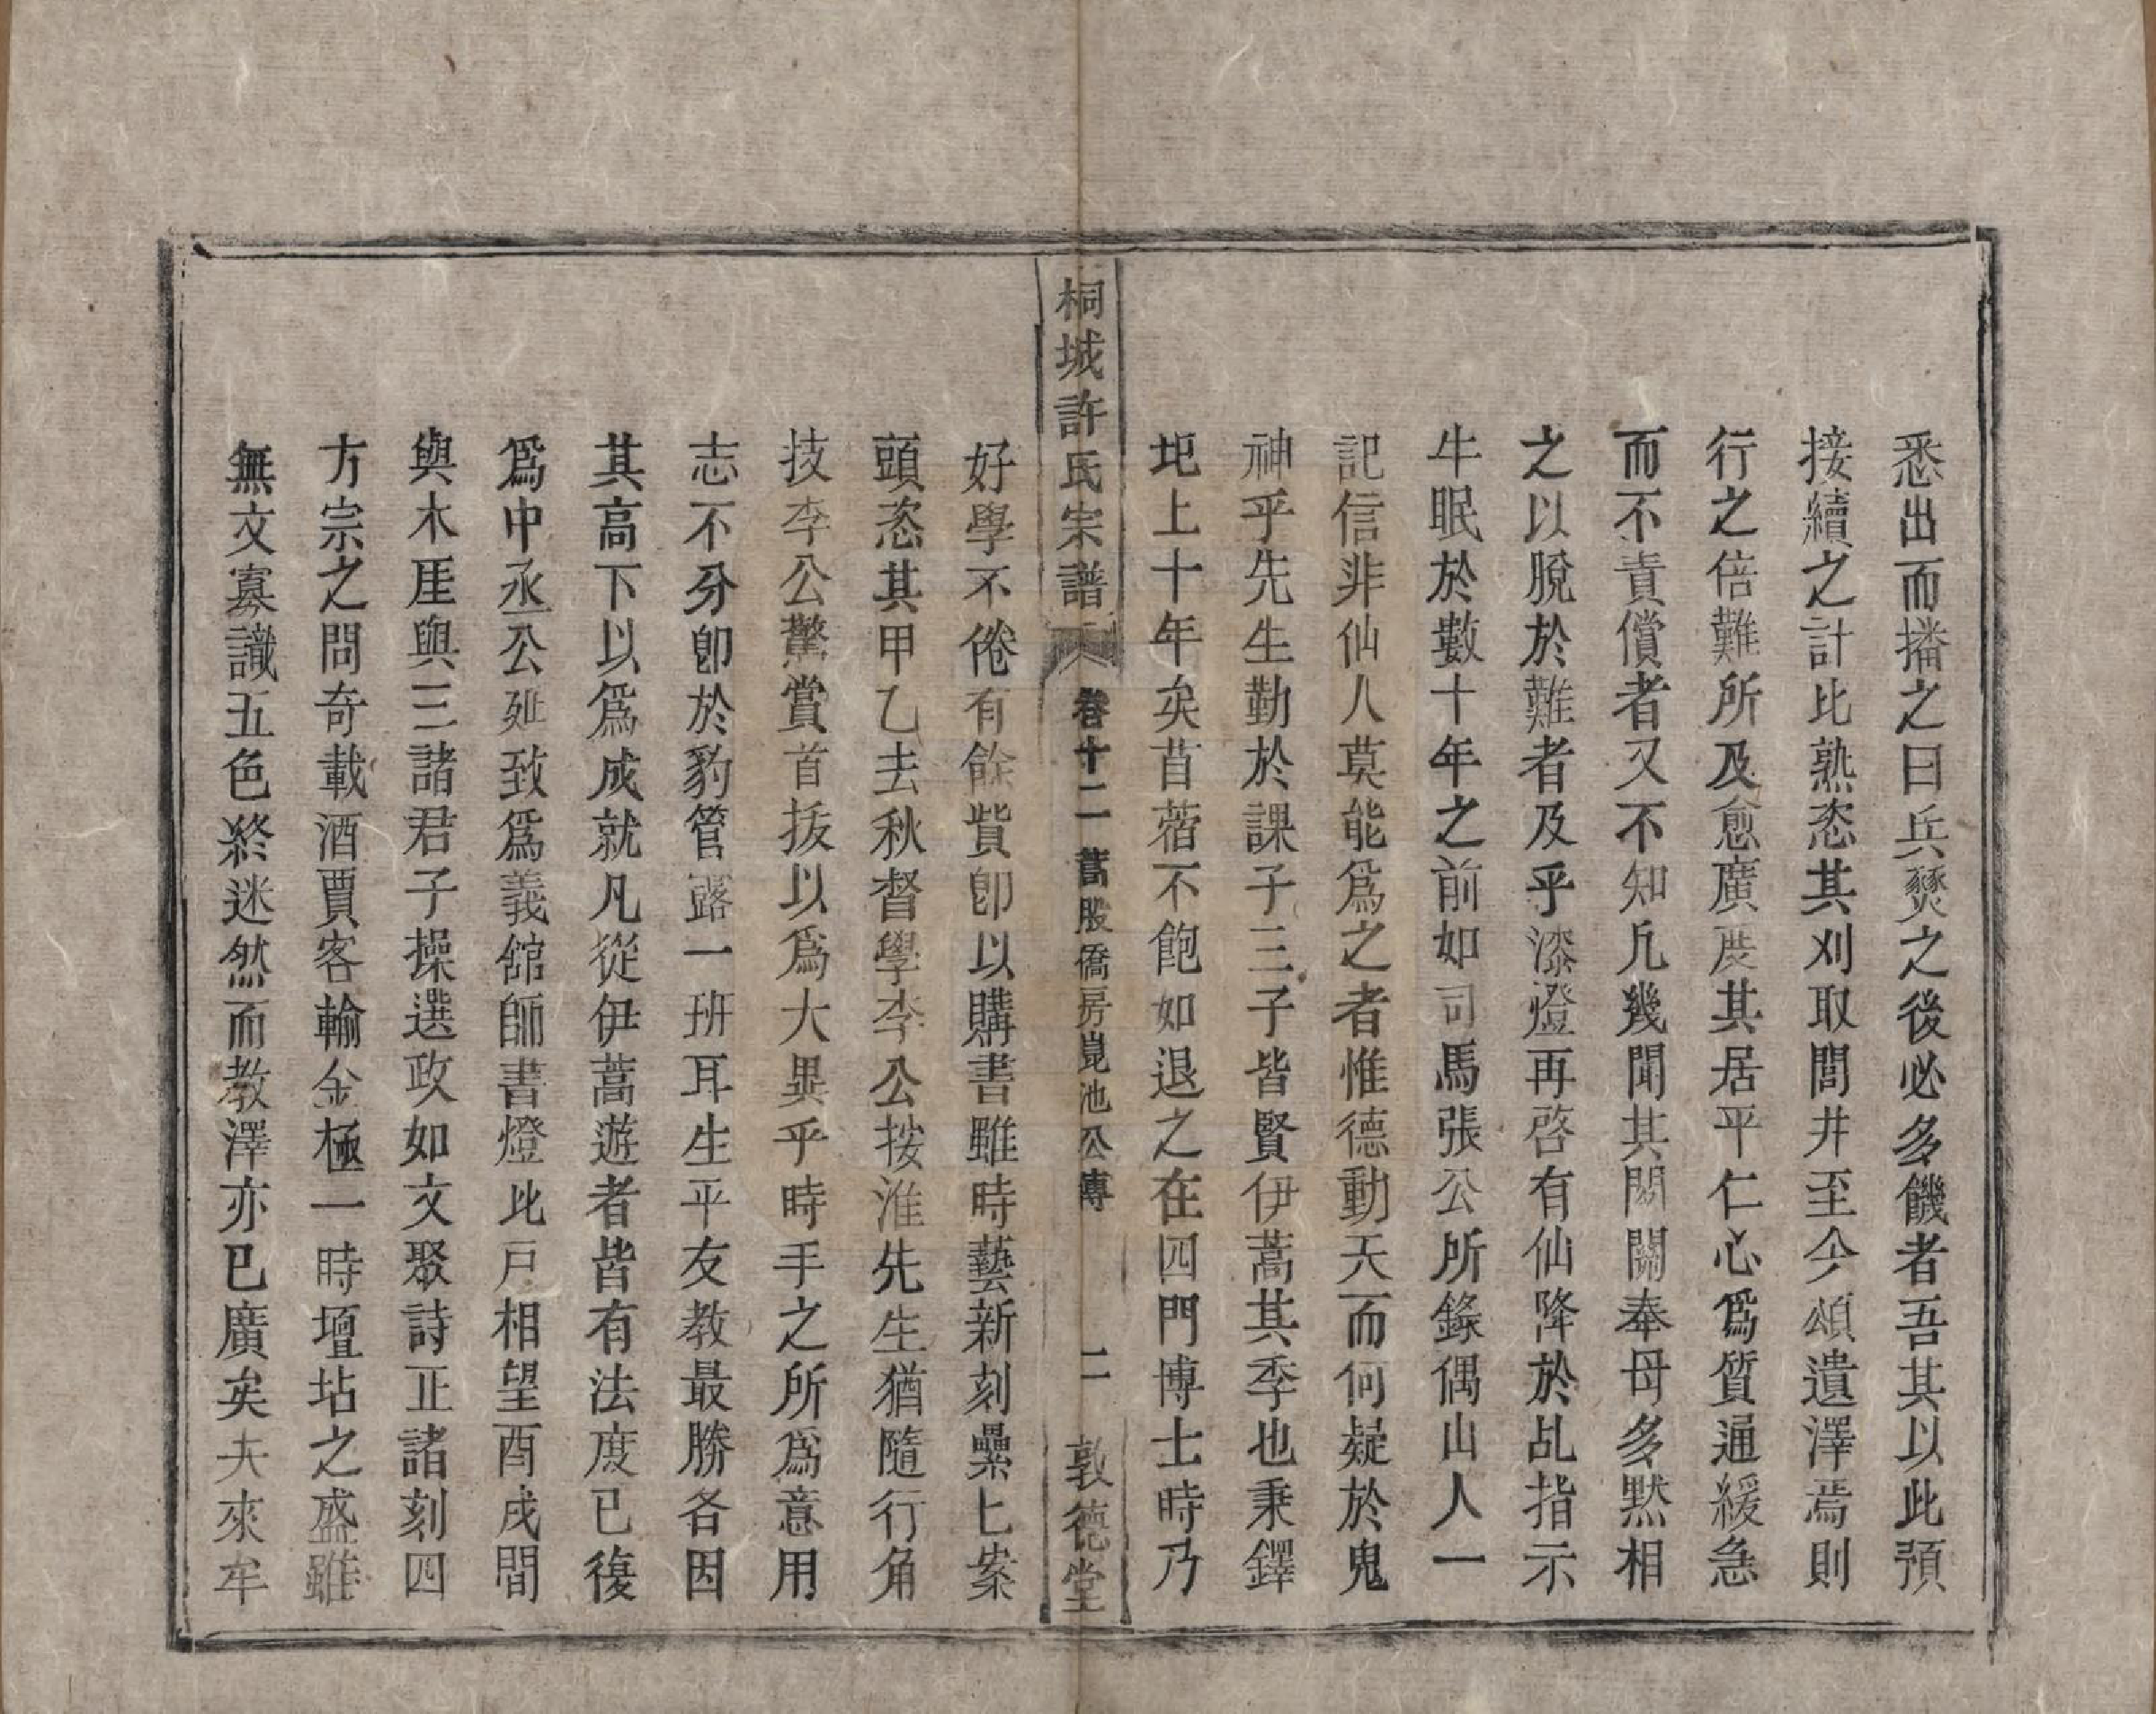 悉出而播之曰兵燹之後必多饑者吾其以此預
接續之計比熟恣其刈取閭井至今頌遺澤焉則
行之倍難所及愈廣度其居平仁心爲質通緩急
而不責償者又不知凡幾聞其閉關奉母多黙相
之以脫於難者及乎漆燈再啓有仙降於乩指示
牛眠於數十年之前如司馬張公所錄偶山人一
記信非仙人莫能爲之者惟德動天而何疑於鬼
神乎先生勤於課子三子皆賢伊蒿其季也秉鐸
圯上十年矣苜蓿不飽如退之在四門博士時乃
桐城許氏宗譜 卷十二 舊股僑房崑池公傳 二 敦德堂
好學不倦有餘貲卽以購書雖時藝新刻纍七案
頭恣其甲乙去秋督學李公按淮先生猶隨行角
技李公驚賞首拔以爲大異乎時手之所爲意用
志不分卽於豹管露一班耳生平友教最勝各因
其高下以爲成就凡從伊蒿遊者皆有法度已復
爲中丞公延致爲義館師書燈比戸相望酉戌間
與木厓與三諸君子操選政如文聚詩正諸刻四
方宗之問奇載酒賈客輸金極一時壇坫之盛雖
無文寡識五色終迷然而教澤亦已廣矣夫來牟